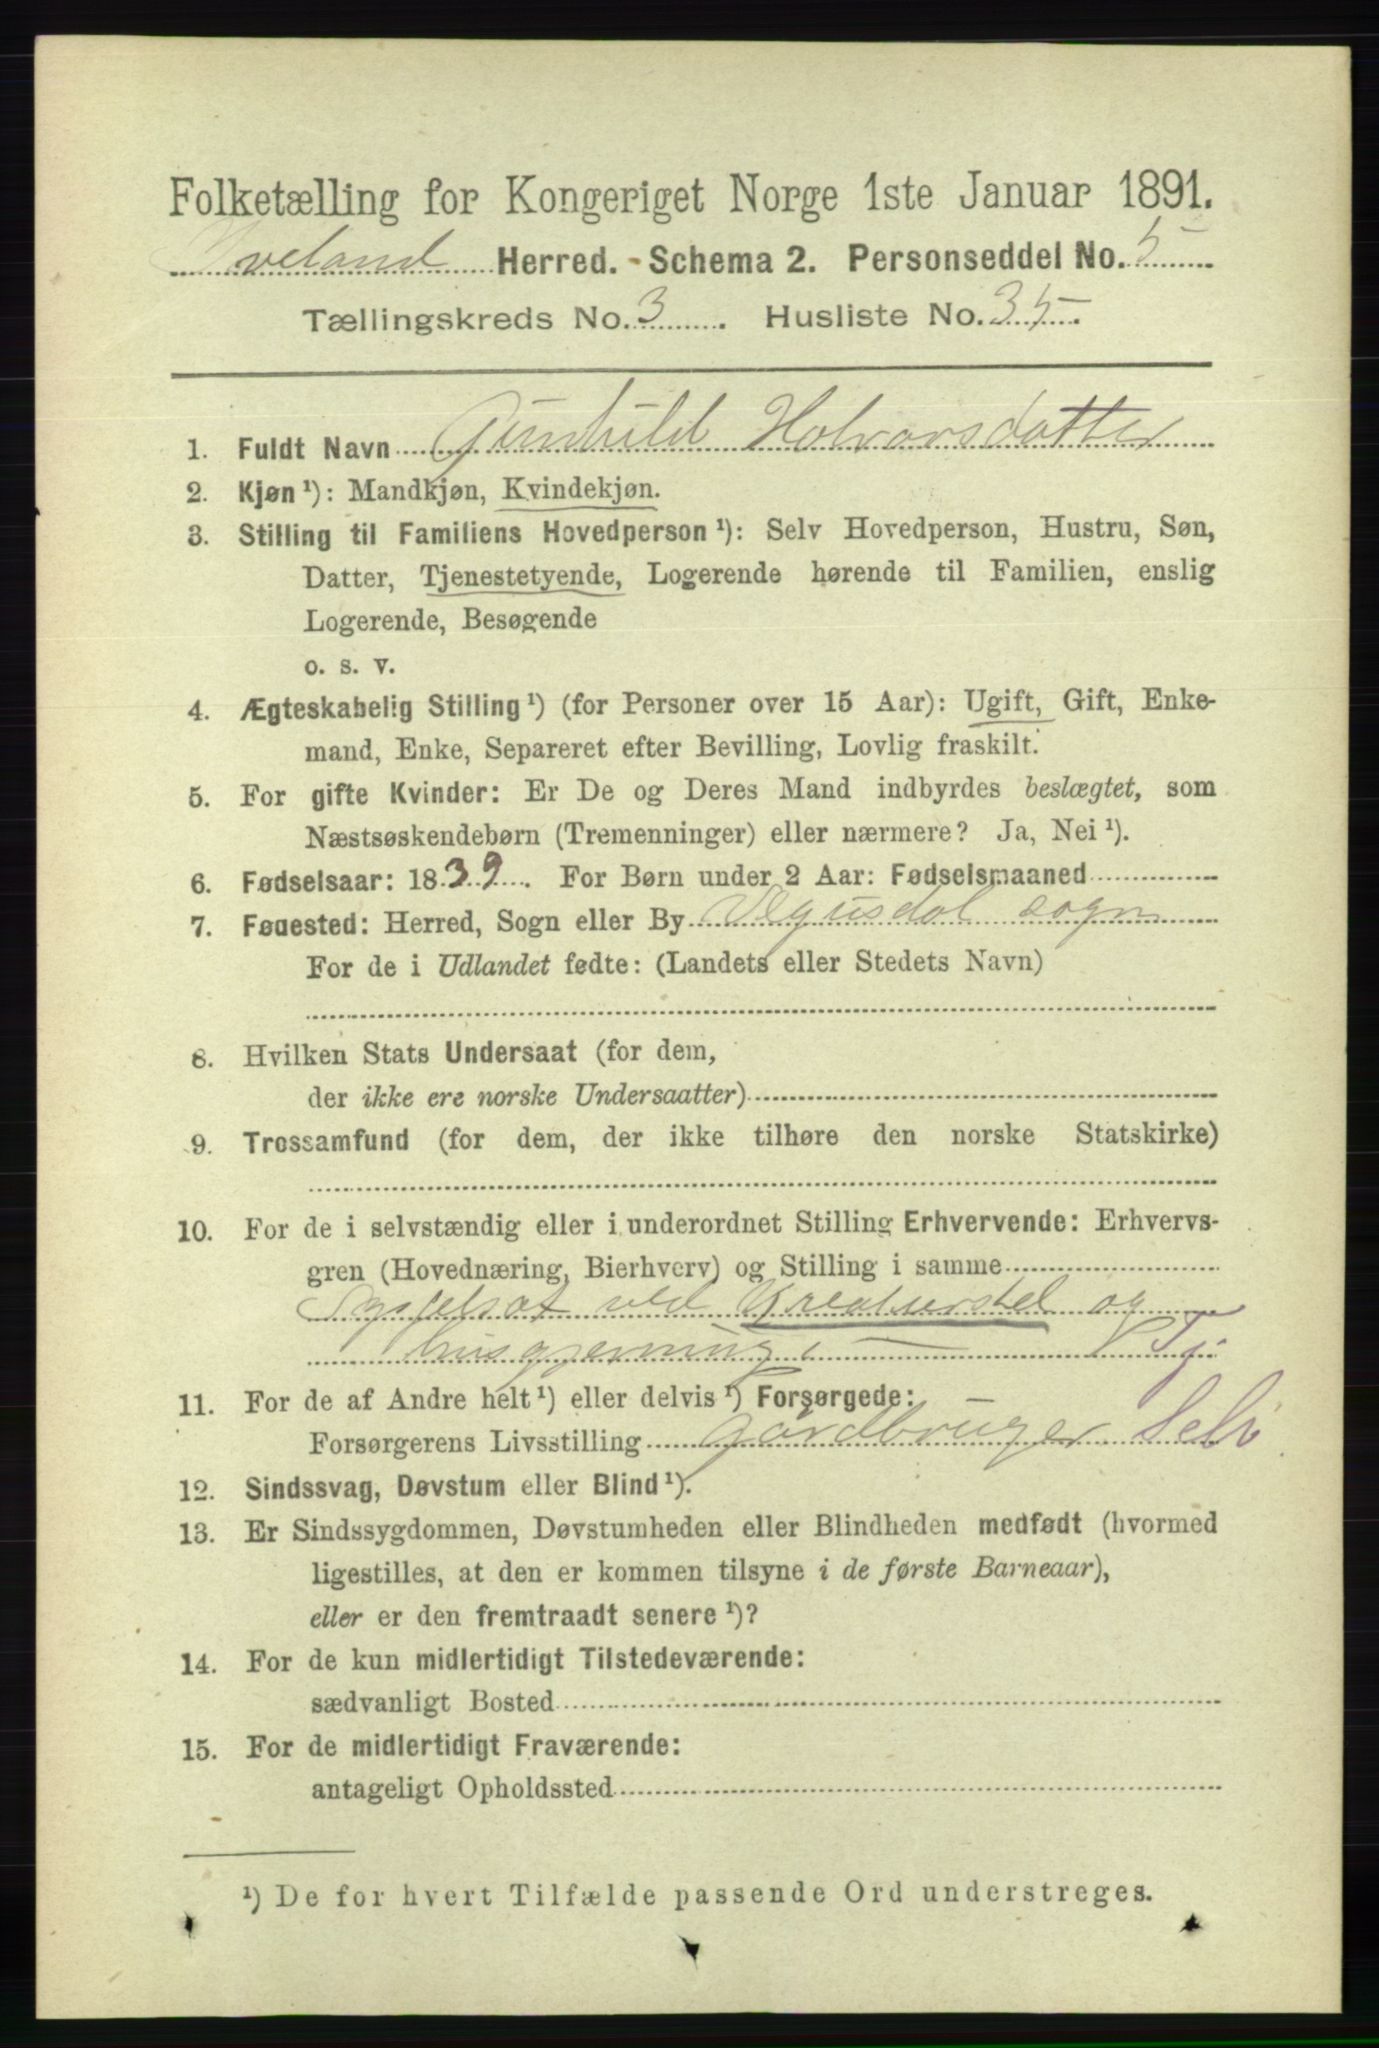 Folketælling for Kongeriget Norge 1ste Januar 1891.
Iveland Herred. - Schema 2. Personseddel No. 5
Tællingskreds No. 3. Husliste No. 35.
1. Fuldt Navn Gunhild Holvorsdatter
2. Kjøn ¹): Mandkjøn, Kvindekjøn.
3. Stilling til Familiens Hovedperson ¹): Selv Hovedperson, Hustru, Søn,
Datter, Tjenestetyende, Logerende hørende til Familien, enslig
Logerende, Besøgende
o. s. v.
4. Ægteskabelig Stilling ¹) (for Personer over 15 Aar): Ugift, Gift, Enke-
mand, Enke, Separeret efter Bevilling, Lovlig fraskilt.
5. For gifte Kvinder: Er De og Deres Mand indbyrdes beslægtet, som
Næstsøskendebørn (Tremenninger) eller nærmere? Ja, Nei ¹).
6. Fødselsaar: 1839. For Børn under 2 Aar: Fødselsmaaned
7. Fødested: Herred, Sogn eller By Vegusdal sogn
For de i Udlandet fødte: (Landets eller Stedets Navn)
8. Hvilken Stats Undersaat (for dem,
der ikke ere norske Undersaatter)
9. Trossamfund (for dem, der ikke tilhøre den norske Statskirke)
10. For de i selvstændig eller i underordnet Stilling Erhvervende: Erhvervs-
gren (Hovednæring, Bierhverv) og Stilling i samme
Sysselsat ved Kreaturstel og
husgjerning Tj
11. For de af Andre helt ¹) eller delvis ¹) Forsørgede:
Forsørgerens Livsstilling gardbruger Selv
12. Sindssvag, Døvstum eller Blind ¹).
13. Er Sindssygdommen, Døvstumheden eller Blindheden medfødt (hvormed
ligestilles, at den er kommen tilsyne i de første Barneaar),
eller er den fremtraadt senere ¹)?
14. For de kun midlertidigt Tilstedeværende:
sædvanligt Bosted
15. For de midlertidigt Fraværende:
antageligt Opholdssted
¹) De for hvert Tilfælde passende Ord understreges.